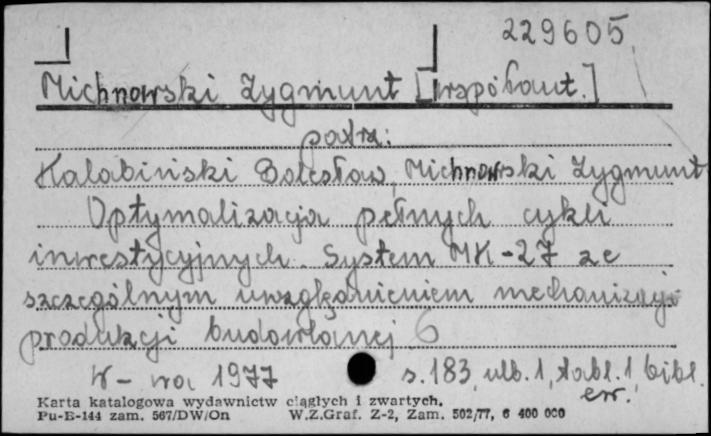 229605
Michnowski Zygmunt [współaut.]
patrz:
Kalabiński Bolesław, Michnowski Zygmunt
Optymalizacja pełnych cykli
inwestycyjnych. System MK-27 ze
szczególnym uwzględnieniem mechanizacji
produkcji budowlanej
W-wa 1977 s. 183, ulb. 1, tabl. 1, bibl.
Karta katalogowa wydawnictw ciągłych i zwartych.
Pu-B-144 zam. 567/DW/On W.Z.Graf. Z-2, Zam. 502/77, 6 400 000